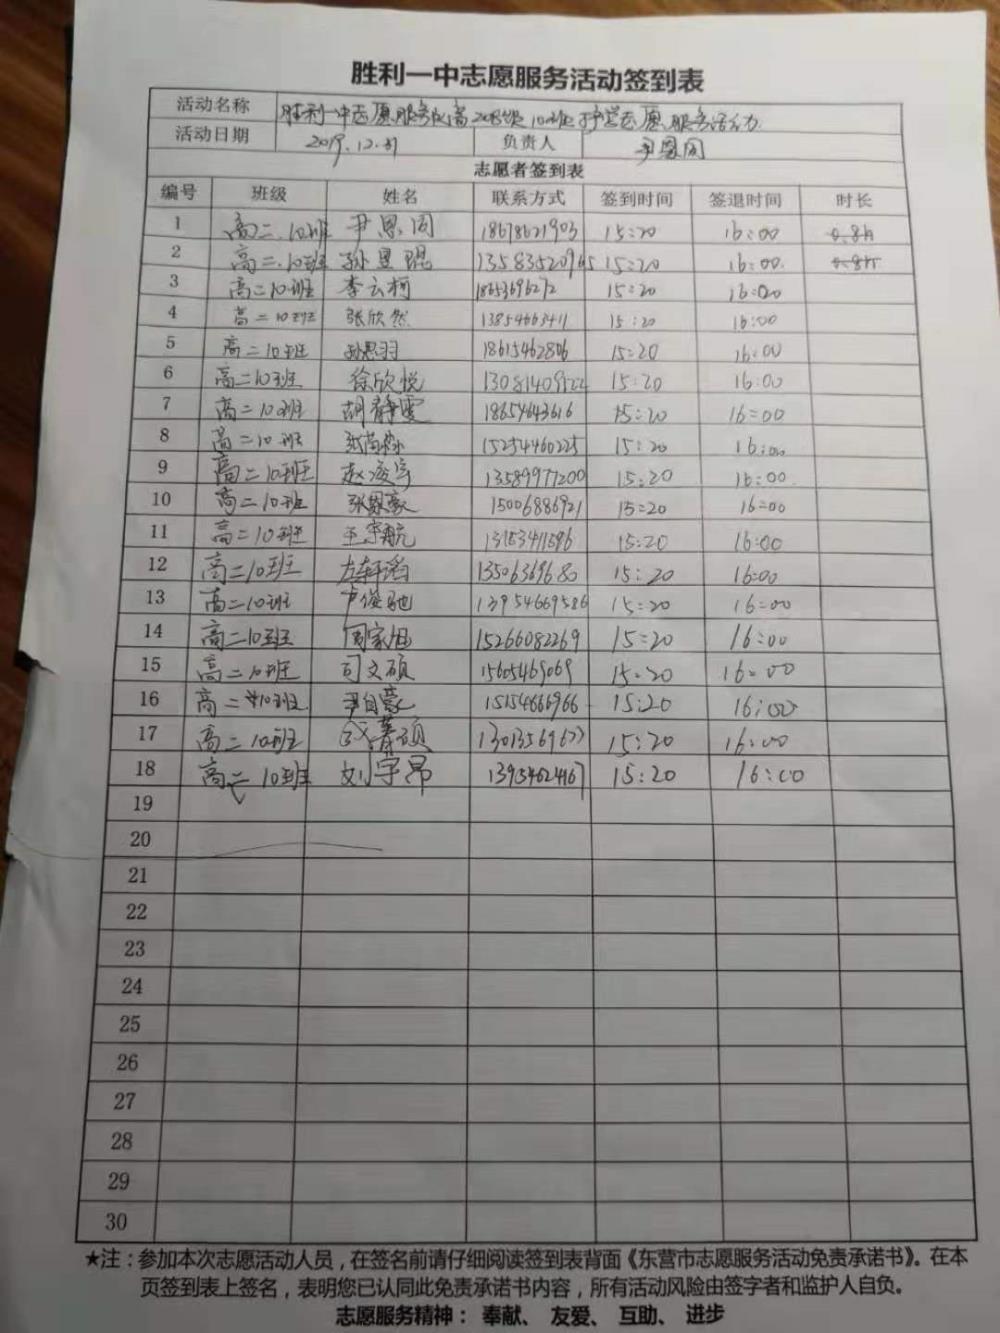 胜利一中志愿服务活动签到表
活动名称 胜利一中志愿服务队高2018级10班护学志愿服务活动
活动日期 2019.12.31 负责人 尹恩同
志愿者签到表
编号 班级 姓名 联系方式 签到时间 签退时间 时长
1 高二.10班 尹恩同 18678621903 15:20 16:00 0.8h
2 高二.10班 孙昱琨 13583520945 15:20 16:00. 0.8h
3 高二10班 李云柯 18653696272 15:20 16:00
4 高二10班 张欣然 13854663411 15:20 16:00
5 高二10班 孙思羽 18615462806 15:20 16:00
6 高二10班 徐欣悦 15:20 16:00
7 高二10班 胡静雯 18654643616 15:20 16:00
8 高二10班 15254460225 15:20 16:00
9 高二10班 赵凌宇 13589977200 15:20 16:00
10 高二10班 15006886921 15:20 16:00
11 高二10班 王宇航 15:20 16:00
12 高二10班 13506369680 15:20 16:00
13 高二10班 卢俊驰 13954669586 15:20 16:00
14 高二10班 周家旭 15266082269 15:20 16:00
15 高二10班 司文硕 15605469069 15:20 16:00
16 高二10班 尹自豪 15154666966 15:20 16:00
17 高二10班 15:20 16:00
18 高二10班 刘宇昂 15:20 16:00
19
20
21
22
23
24
25
26
27
28
29
30
★注：参加本次志愿活动人员，在签名前请仔细阅读签到表背面《东营市志愿服务活动免责承诺书》。在本
页签到表上签名，表明您已认同此免责承诺书内容，所有活动风险由签字者和监护人自负。
志愿服务精神： 奉献、 友爱、 互助、 进步